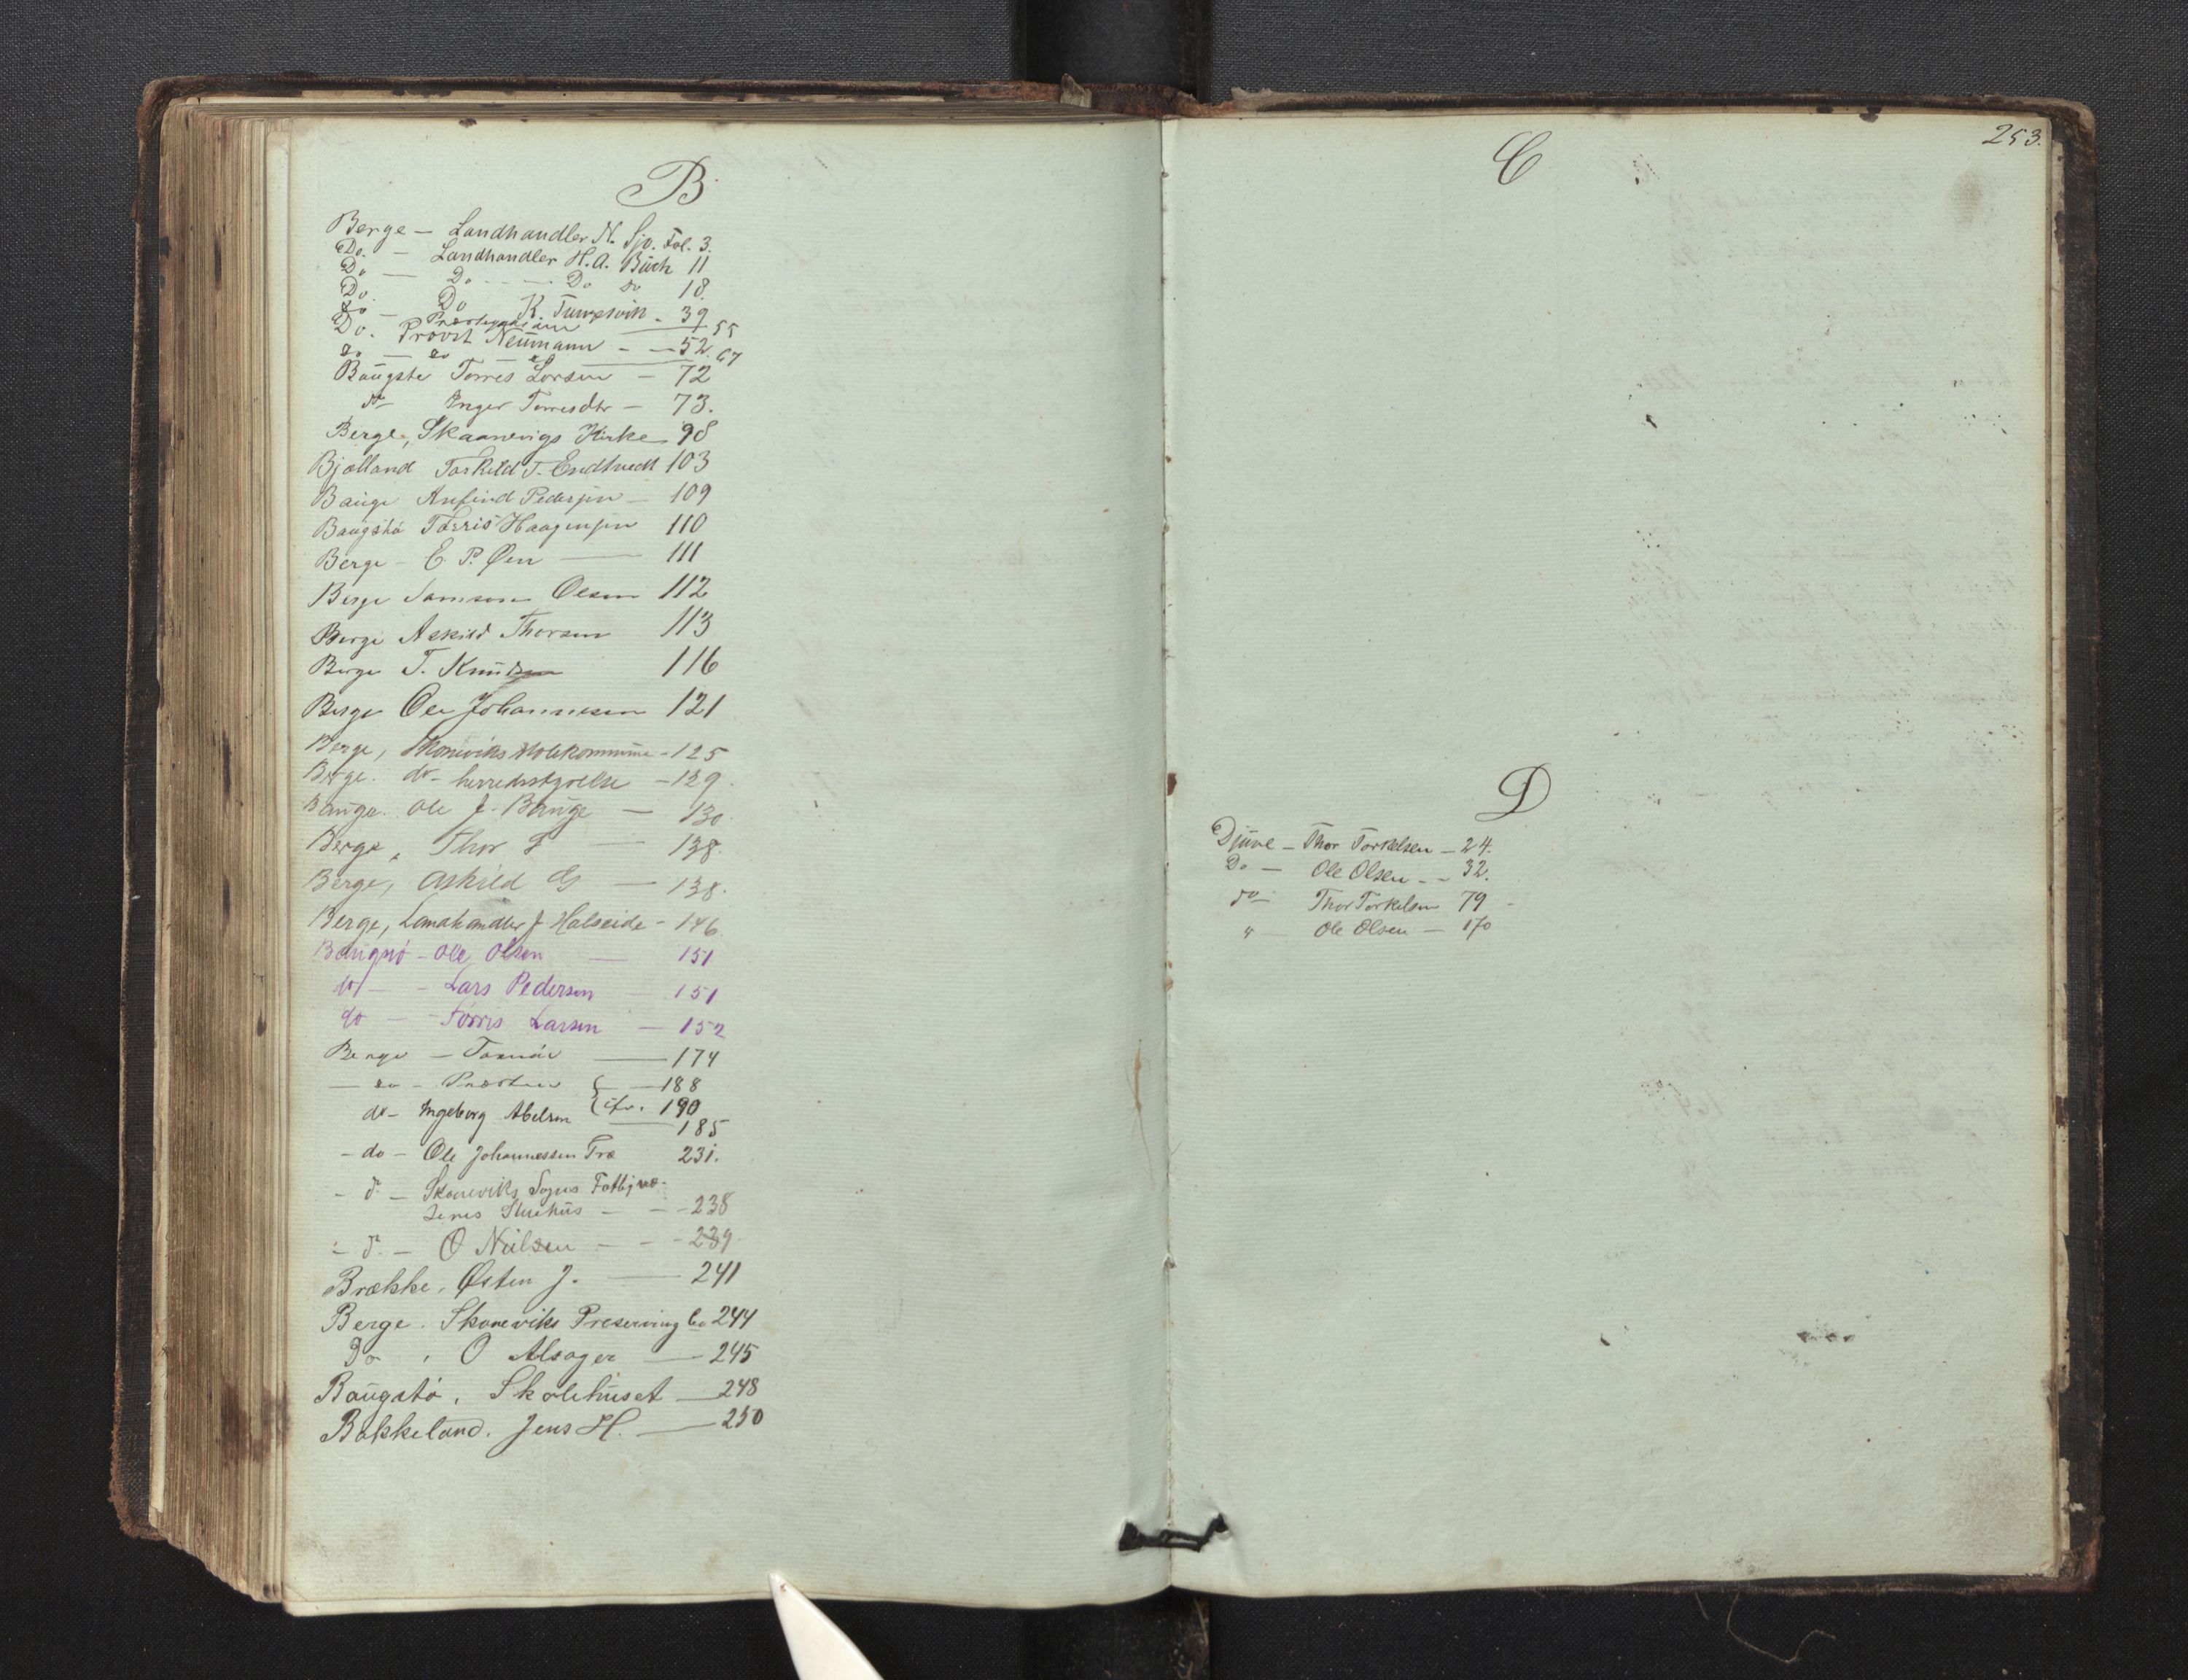 B.
Berge – Landhandler N. Sjo. Fol. 3.
Do. – Landhandler H. A. Büch 11
Do — Do - - — Do do 18.
Do. – Do K. Tungesvik - 39
do Præstegaarden — 55
Do. Provst Neümann - — 52.
do — do — " — 67
Baügstø Torres Larsen — 72
do Inger Torresdtr — 73.
Berge, Skaanevigs Kirke 98
Bjælland Torkild T. Endtvedt 103
Baüge Anfind Pedersen — 109
Baugstø Tørris Haagensen 110
Berge – E. P. Øen — 111
Berge Samson Olsen 112
Berge Askild Thorsen 113
Berge T. Knüdsen 116
Berge Ole Johannesen 121
Berge, Skoneviks skolekommune - 125
Berge. do – herredsstyrelse — 129.
Baüge. Ole J. Baüge — 130.
Berge, Thor T — 138.
Berge, Askild G — 138.
Berge, Landhandler J. Halseide – 146.
Baügstø – Ole Olsen — 151
do — - Lars Pedersen 151
do — - Tørris Larsen — 152
Berge — — 174
— do – Præsten { — 188
do – Ingeborg Abelsen { 190
— 185
– do – Ole Johannessen Træ 231.
– d. – Skoneviks Sogns Fattigvæ-
senes — - 238
– d. – O Nielsen — - - 239
Brække, Østen J. — 241
Berge. Skoneviks Preserving Co 244
Do , O Alsager — 245
Baügstø, Skolehüset — 248
Bakkeland. Jens H. — 250
253.
C
D
Djüve – Thor Torkelsen – 24.
Do — Ole Olsen - - 32.
do Thor Torkelsen 79 -
" Ole Olsen — 170